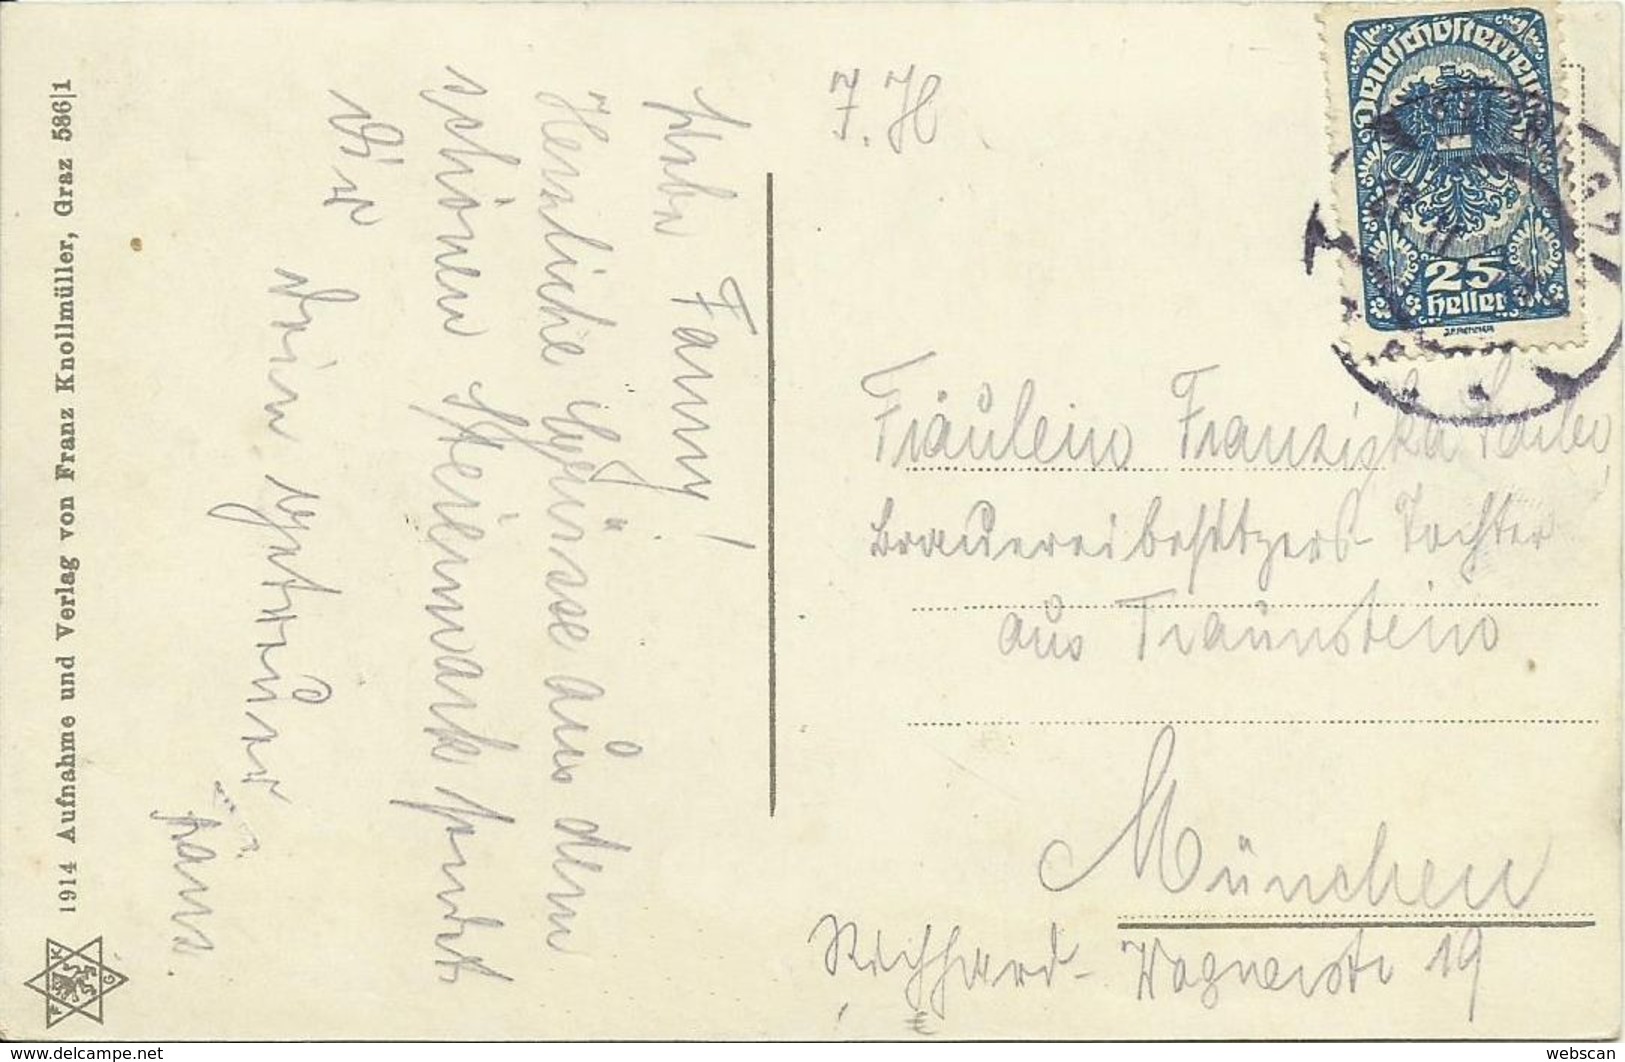 1914 Aufnahme und Verlag von Franz Knollmüller, Graz 586|1
F K G
Liebe Fanny!
Herzliche Grüsse aus dem
schönen Steiermark sendet
Dir
Dein getreuer
7. H
Deutschösterreich
25
Heller
J.F.RENNER
Fräulein Franziska
Brauereibesitzers Tochter
aus Traunstein
München
Richhard-Wagnerstr 19
www.delcampe.net
webscan